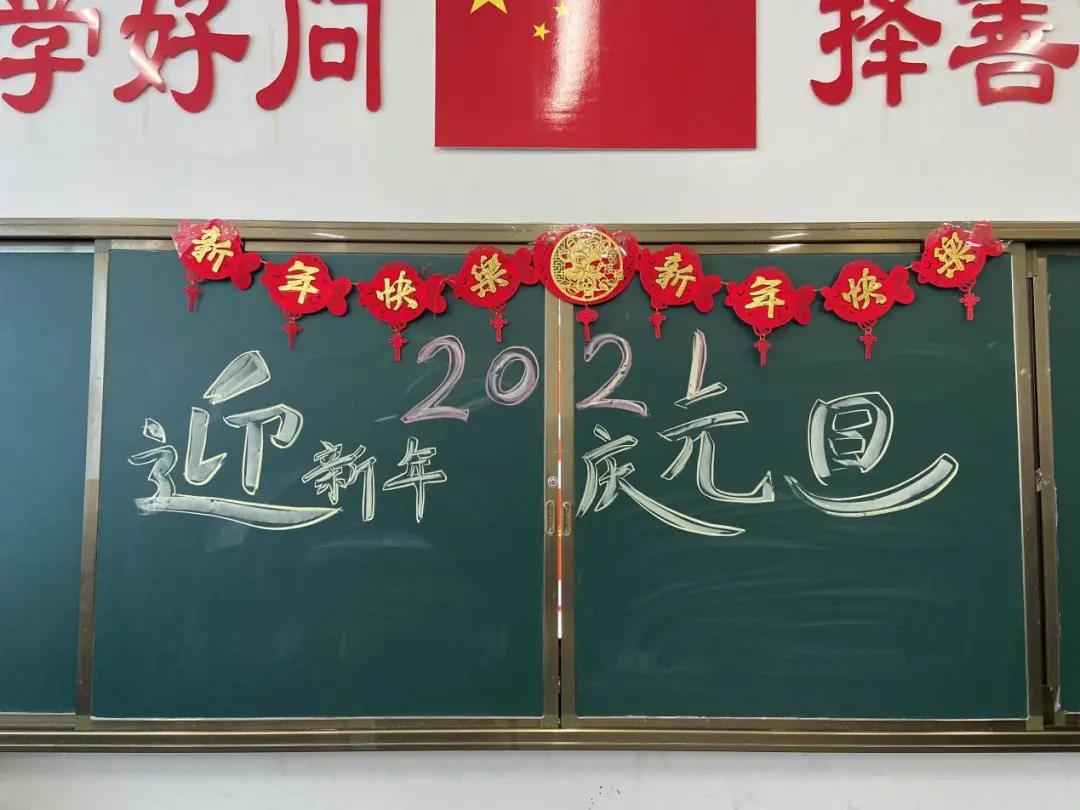 学好问 择善
新年快樂 新年快樂
2021
迎新年 庆元旦